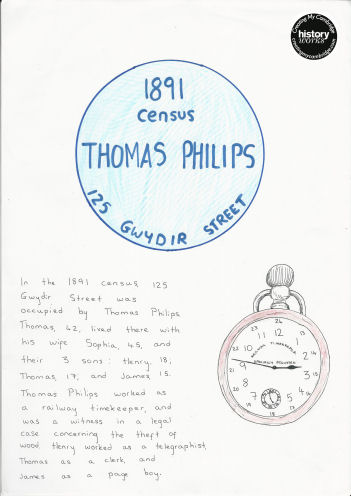 Creating My Cambridge
history
works
creatingmycambridge.com
1891
census
THOMAS PHILIPS
125 GWYDIR STREET
In the 1891 census, 125
Gwydir Street was
occupied by Thomas Philips.
Thomas, 42, lived there with
his wife Sophia, 45, and
their 3 sons: Henry, 18;
Thomas, 17, and James, 15.
Thomas Philips worked as
a railway timekeeper, and
was a witness in a legal
case concerning the theft of
wood. Henry worked as a telegraphist,
Thomas as a clerk, and
James as a page boy.
24
23
13
22
14
21
15
20
16
19
17
18
12
1
2
3
4
5
7
8
9
10
11